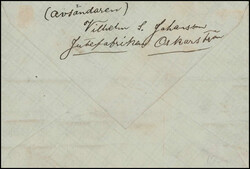 (avsändaren)
Vilhelm S. Johansson
Jutefabriken Oskarström